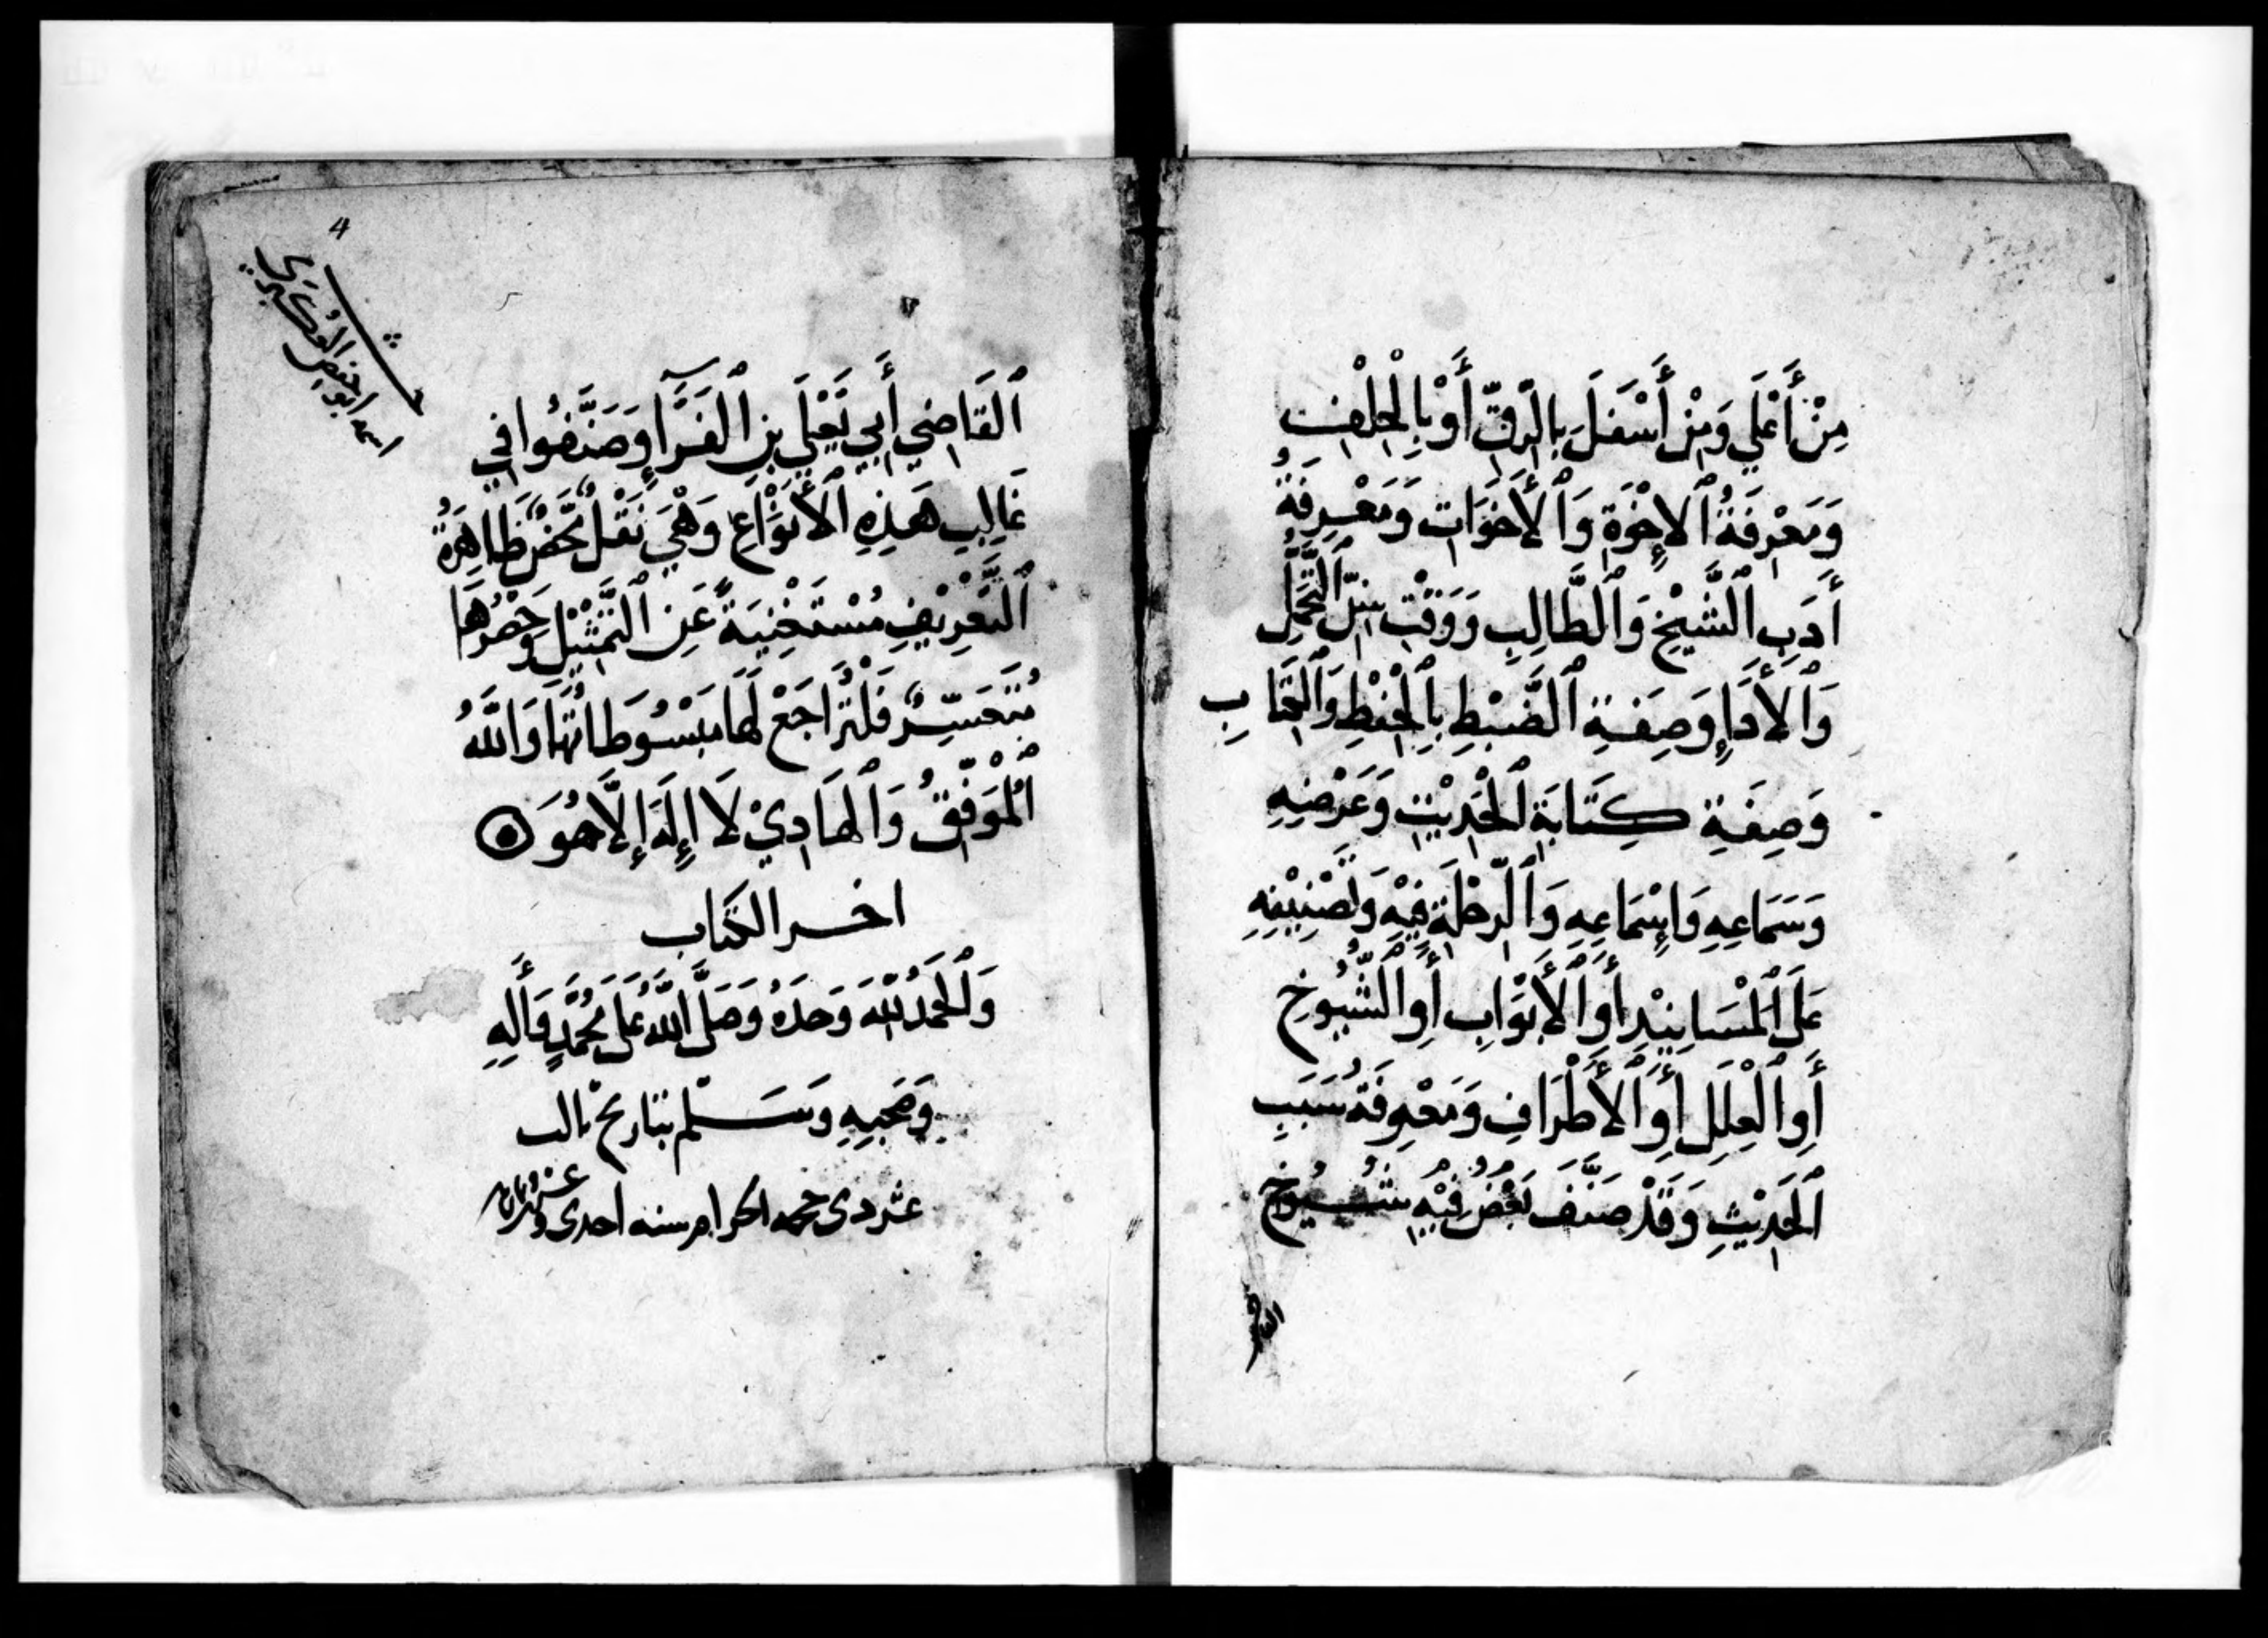 مِنْ أَعْلَي وَمِنْ أَسْفَلَ بِالرِّقِّ أَوْ بِالْحِلْفِ
وَمَعْرِفَةُ الإِخْوَةِ وَالأَخَوَاتِ وَمَعْرِفَةُ
أَدَبِ الشَّيْخِ وَالطَّالِبِ وَوَقْتِ سِنِّ التَّحَمُّلِ
وَالأَدَاءِ وَصِفَةِ الضَّبْطِ بِالْحِفْظِ وَالْكِتَابِ
وَصِفَةِ كِتَابَةِ الْحَدِيْثِ وَعَرْضِهِ
وَسَمَاعِهِ وَإِسْمَاعِهِ وَالرِّحْلَةِ فِيْهِ وَتَصْنِيْفِهِ
عَلَى الْمَسَانِيْدِ أَوِ الأَبْوَابِ أَوِ الشُّيُوخِ
أَوِ الْعِلَلِ أَوِ الأَطْرَافِ وَمَعْرِفَةُ سَبَبِ
الْحَدِيْثِ وَقَدْ صَنَّفَ فِيْهِ بَعْضُ شُيُوخِ
القاضي
4
اسمه ابو حفص العُكبَري
الْقَاضِي أَبِي يَعْلَي بْنِ الْفَرَّآءِ وَصَنَّفُوا فِي
غَالِبِ هَذِهِ الأَنْوَاعِ وَهْيَ نَقْلٌ مَحْضٌ ظَاهِرَةُ
التَّعْرِيْفِ مُسْتَغْنِيَةً عَنِ التَّمْثِيْلِ وَحَصْرُهَا
مُتَعَسِّرٌ فَلْتُرَاجَعْ لَهَا مَبْسُوطَاتُهَا وَاللَّهُ
الْمُوَفِّقُ وَالْهَادِيْ لَا إِلَهَ إِلَّا هُوَ
اخر الكتاب
وَالْحَمْدُ لِلَّهِ وَحْدَهُ وَصَلَّى اللَّهُ عَلَى مُحَمَّدٍ وَأَلِهِ
وَصَحْبِهِ وَسَلَّم بتاريخ ثالث
عشر دى حجه الحرام سنه احدى